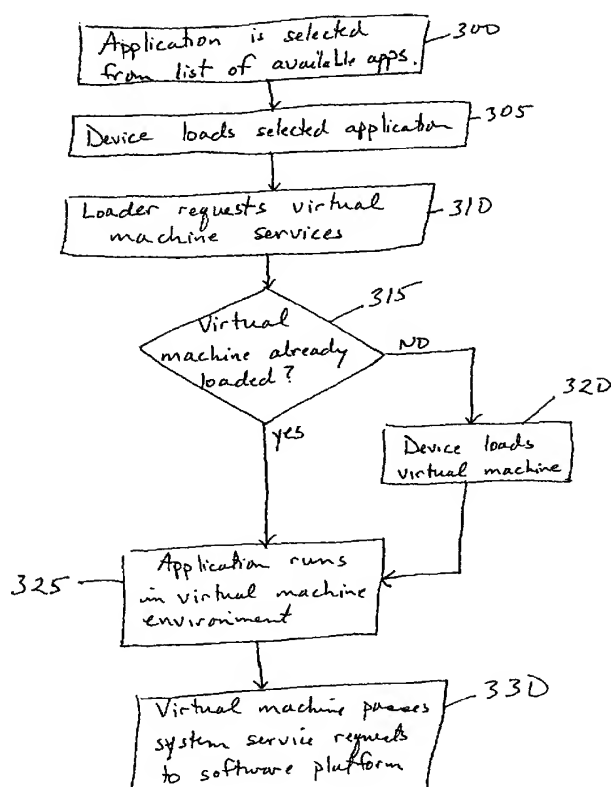 Application is selected
from list of available apps.
300
Device loads selected application
305
Loader requests virtual
machine services
310
315
Virtual
machine already
loaded?
NO
yes
320
Device loads
virtual machine
325
Application runs
in virtual machine
environment
330
Virtual machine passes
system service requests
to software platform